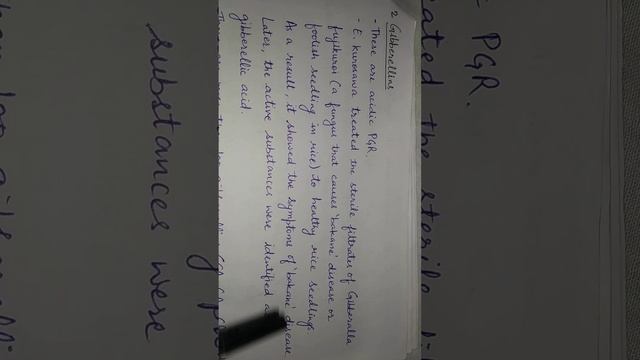 2 Gibberellins
- These are acidic PGR.
- E. kurosawa treated the sterile filtrates of Gibberella
fujikuroi (a fungus that causes 'bakane' disease or
foolish seedling in rice) to healthy rice seedlings.
As a result, it showed the symptoms of 'bakane' disease
Later, the active substances were identified a
gibberellic acid.
PGR.
ated the sterile
substances were